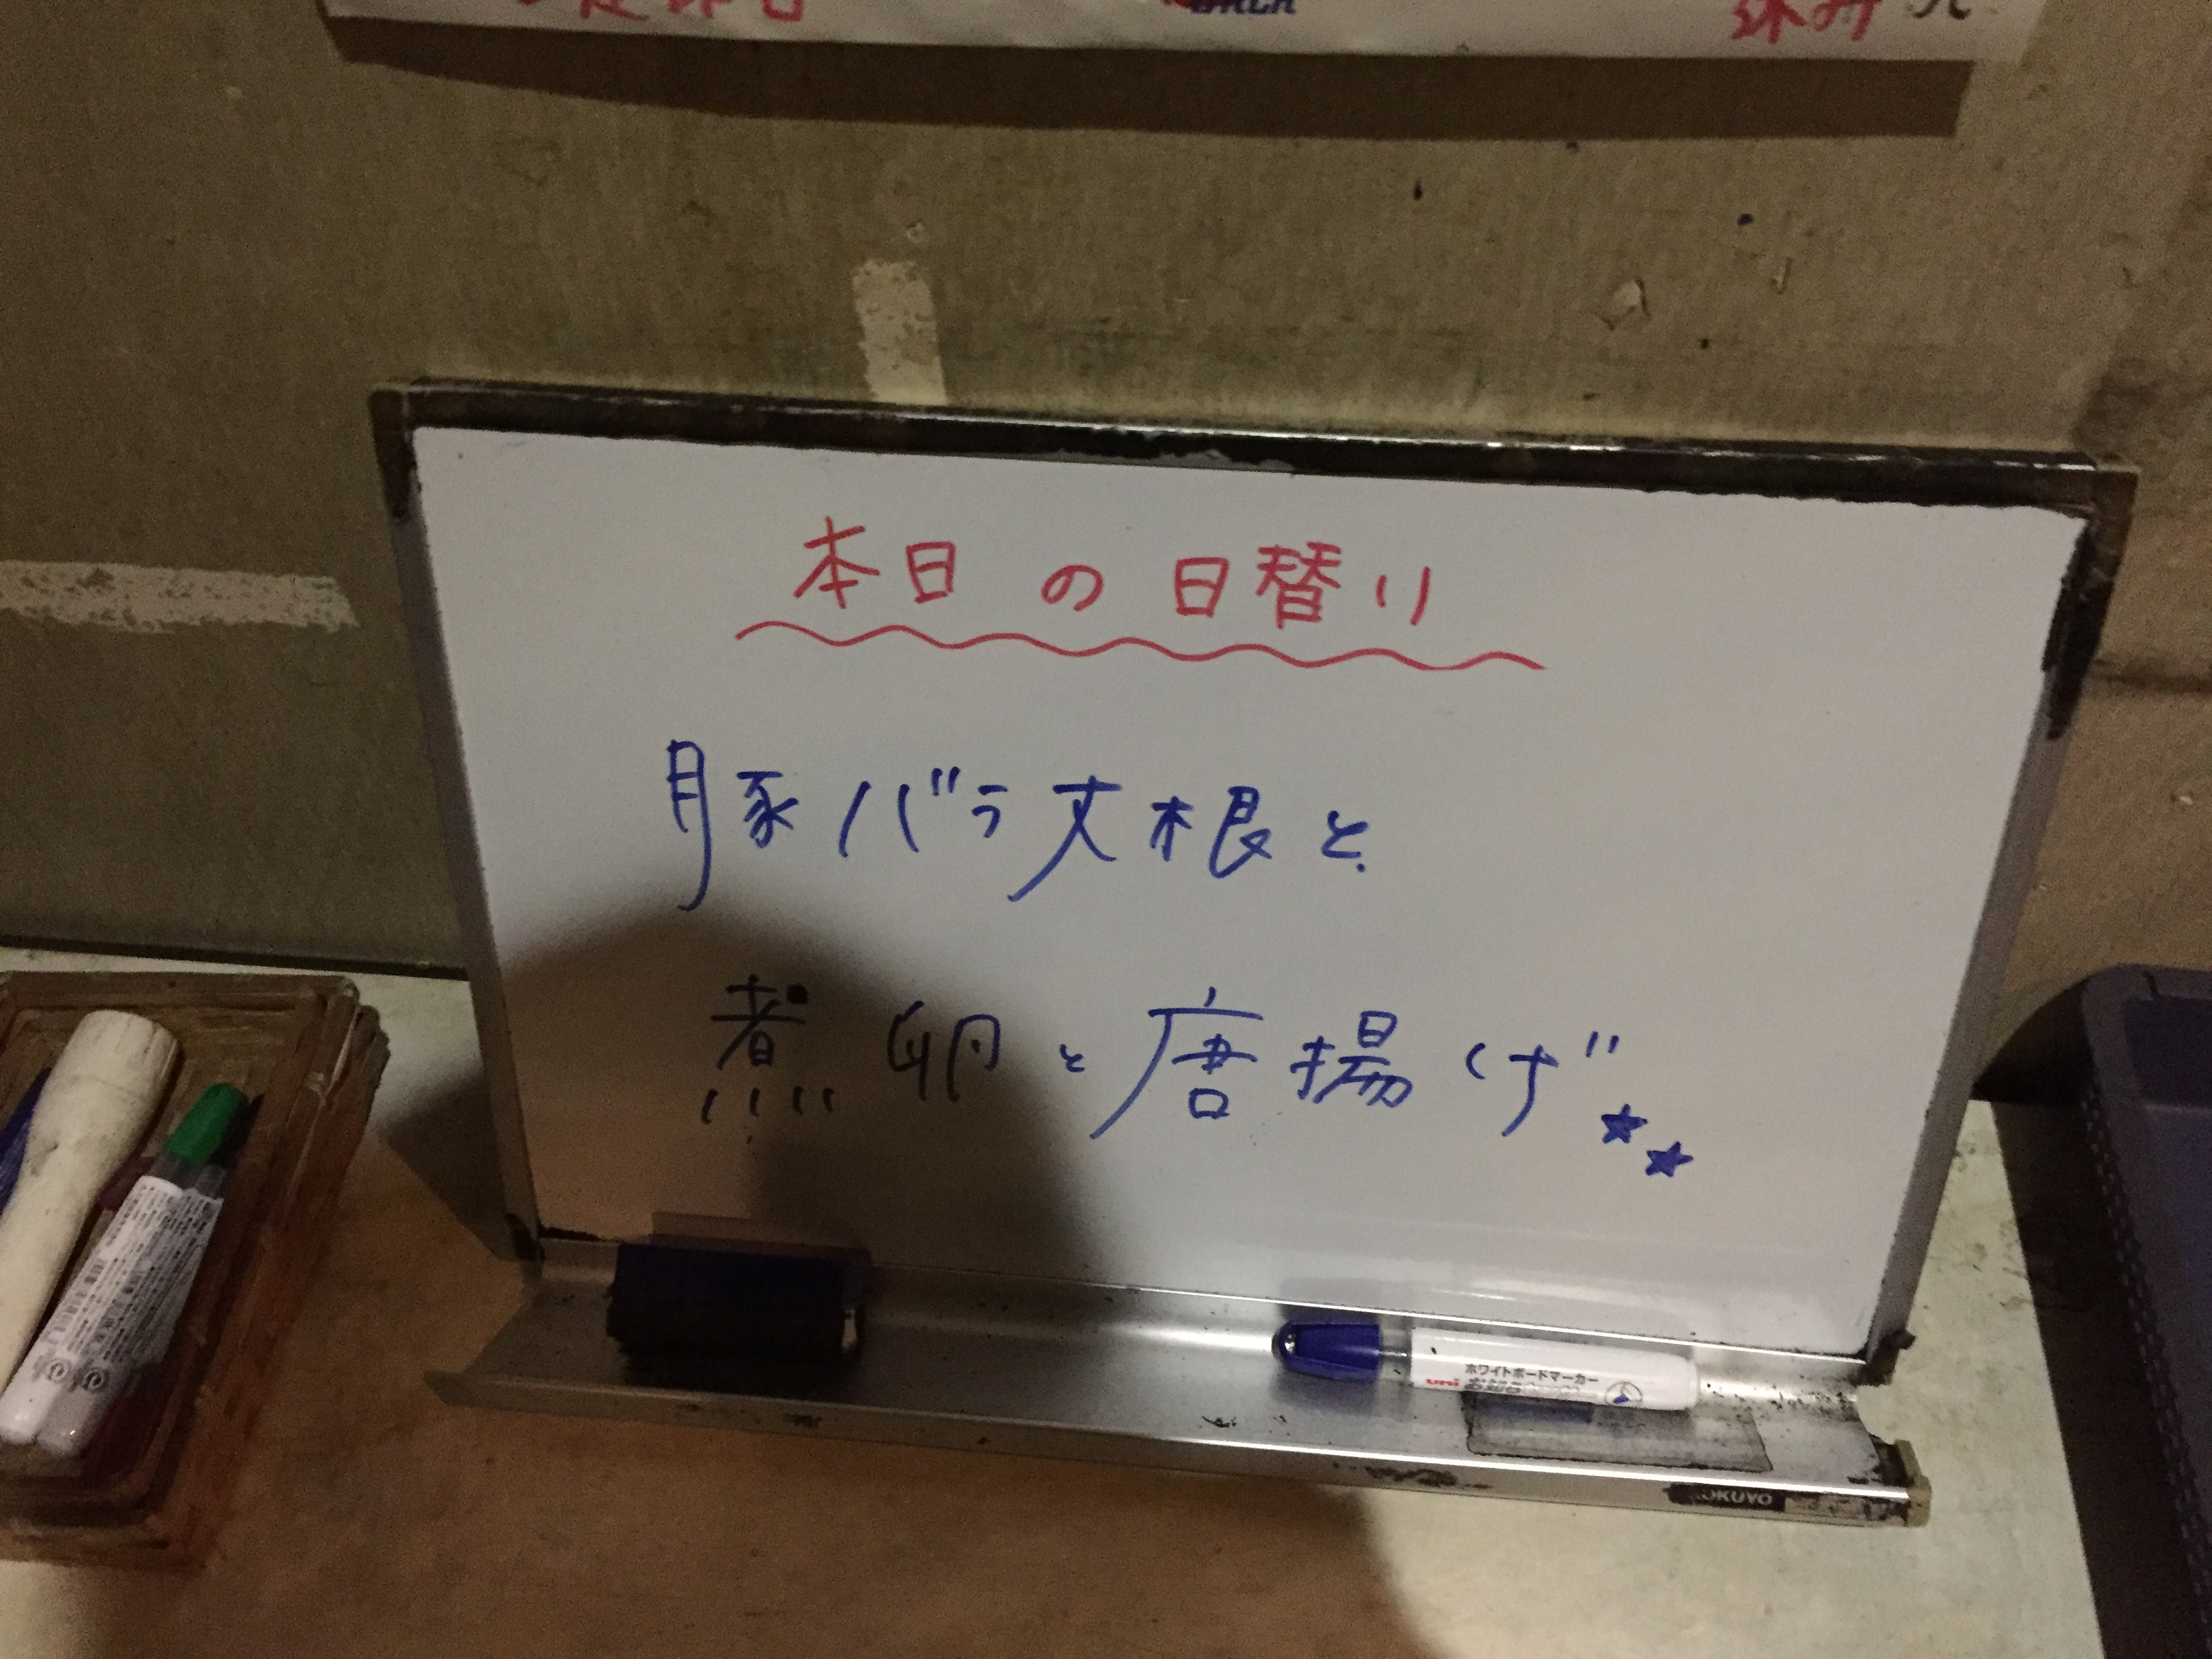 休み
本日の日替り
豚バラ大根と
煮卵と唐揚げ★★
ホワイトボードマーカー
uni
KOKUYO